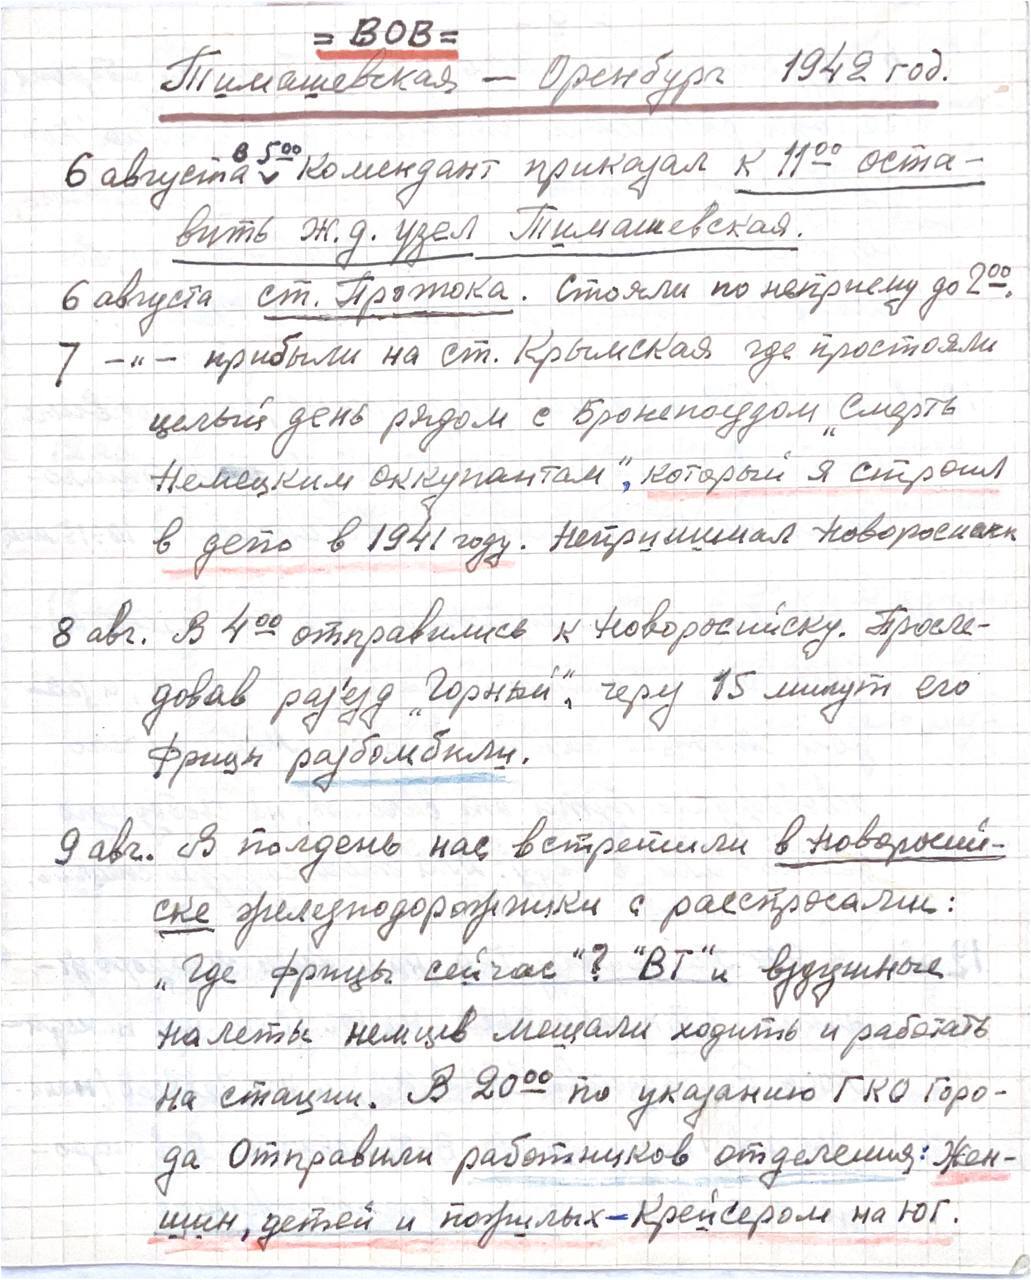 = ВОВ =
Тимашевская — Оренбург 1942 год.
6 августа в 5⁰⁰ Комендант приказал к 11⁰⁰ оста-
вить ж.д. узел Тимашевская.
6 августа ст. Протока. Стояли по неприему до 2⁰⁰.
7 —"— прибыли на ст. Крымская где простояли
целый день рядом с Бронепоездом „Смерть
Немецким оккупантам", который я строил
в депо в 1941 году. Непринимал Новоросийск
8 авг. В 4⁰⁰ отправились к Новоросийску. Просле-
довав раз'езд „Горный", через 15 минут его
Фрицы разбомбили.
9 авг. В полдень нас встретили в Новоросий-
ске железнодорожники с расспросами:
„Где фрицы сейчас"? "ВТ" и вздушные
налеты немцев мещали ходить и работать
на стации. В 20⁰⁰ по указанию ГКО Горо-
да Отправили работников отделения: Жен-
щин, детей и пожилых – Крейсером на ЮГ.